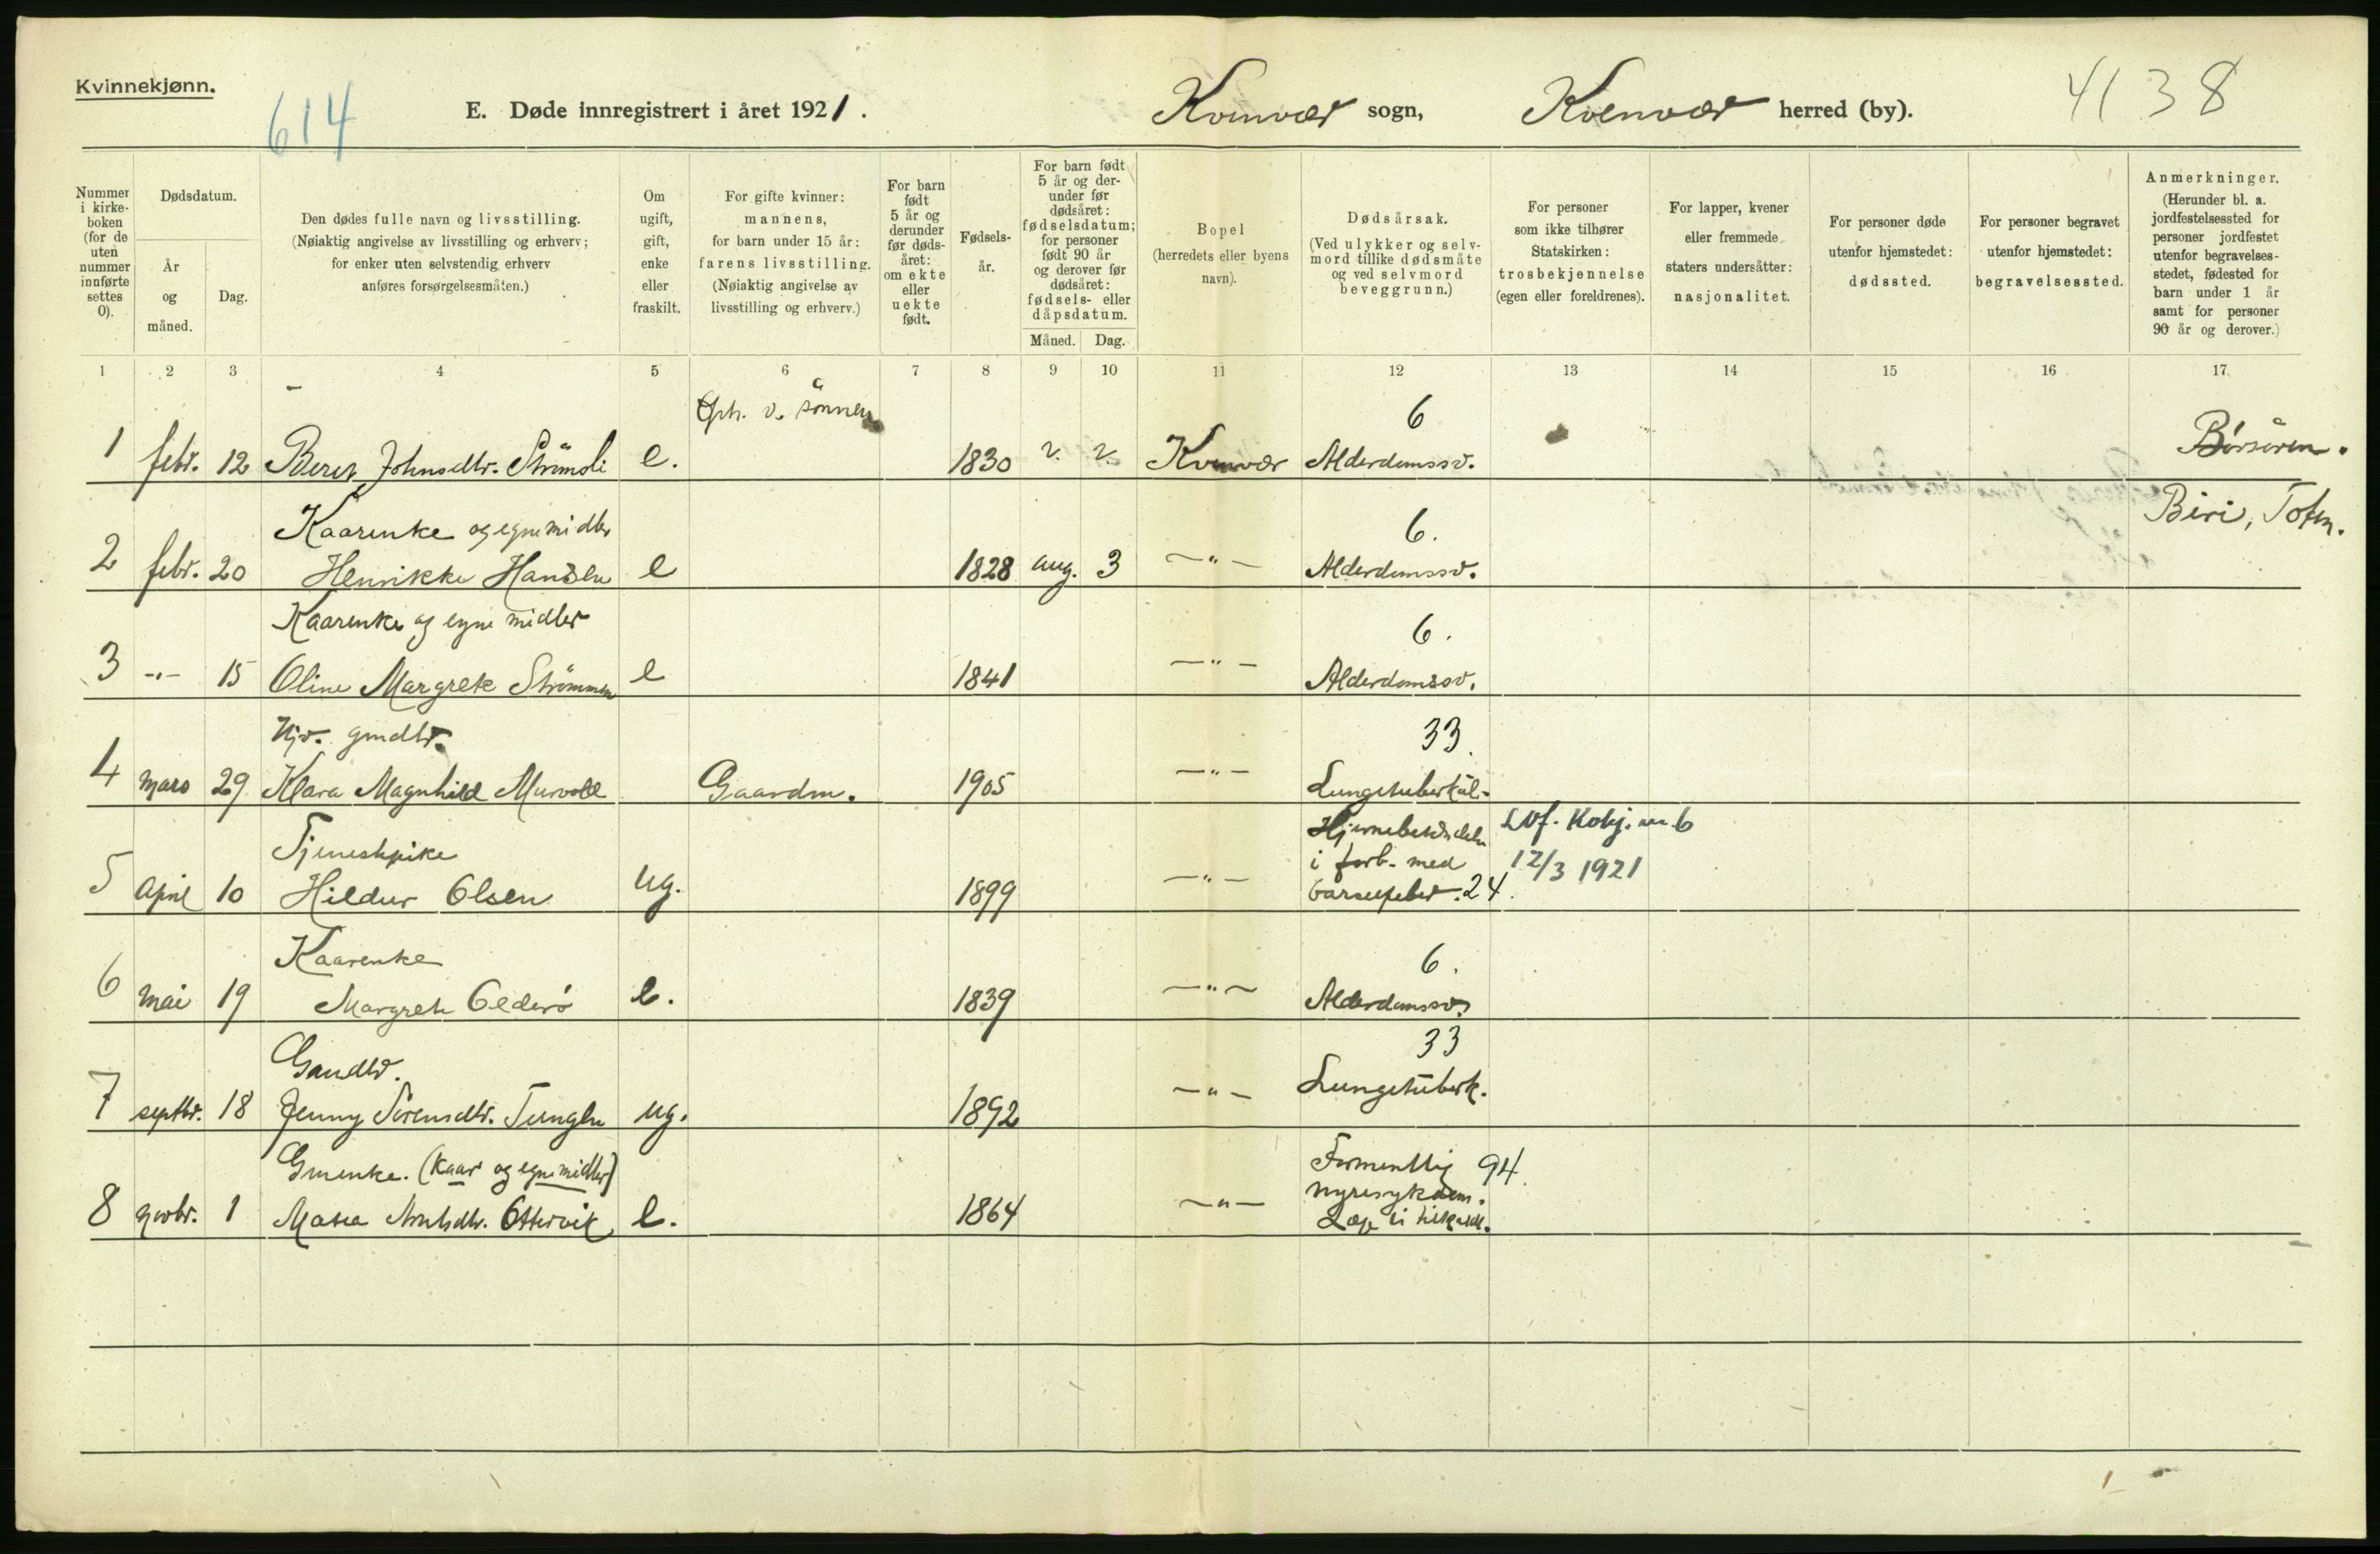 Kvinnekjønn.
614
E. Døde innregistrert i året 1921.
Kvenvær sogn, Kvenvær herred (by).
4138
Nummer i kirke-boken (for de uten nummer innførte settes 0).
Dødsdatum.
År og måned.
Dag.
Den dødes fulle navn og livsstilling.
(Nøiaktig angivelse av livsstilling og erhverv;
for enker uten selvstendig erhverv
anføres forsørgelsesmåten.)
Om ugift, gift, enke eller fraskilt.
For gifte kvinner:
mannens,
for barn under 15 år:
farens livsstilling.
(Nøiaktig angivelse av
livsstilling og erhverv.)
For barn født 5 år og derunder før døds-året: om ekte eller uekte født.
Fødsels-år.
For barn født 5 år og der-under før dødsåret: fødselsdatum; for personer født 90 år og derover før dødsåret: fødsels- eller dåpsdatum.
Måned. Dag.
Bopel
(herredets eller byens
navn).
Dødsårsak.
(Ved ulykker og selv-
mord tillike dødsmåte
og ved selvmord
beveggrunn.)
For personer
som ikke tilhører
Statskirken:
trosbekjennelse
(egen eller foreldrenes).
For lapper, kvener
eller fremmede
staters undersåtter:
nasjonalitet.
For personer døde
utenfor hjemstedet:
dødssted.
For personer begravet
utenfor hjemstedet:
begravelsessted.
Anmerkninger.
(Herunder bl. a.
jordfestelsessted for
personer jordfestet
utenfor begravelses-
stedet, fødested for
barn under 1 år
samt for personer
90 år og derover.)
1 2 3 4 5 6 7 8 9 10 11 12 13 14 15 16 17
v. sønnen 6
1 febr. 12 Beret Johnsdtr. Strömoli e. 1830 ?. ?. Kvenvær Alderdomssv. Börsören.
Kaarenke og egne midler 6. Biri, Toten.
2 febr. 20 Henrikke Hansen e 1828 aug. 3 —"— Alderdomssv.
Kaarenke og egne midler 6.
3 -"- 15 Oline Margrete Strömmen e 1841 —"— Alderdomssv.
Hjv. gmdtr. 33.
4 mars 29 Klara Magnhild Murvold Gaardm. 1905 —"— Lungetuberkul.
Tjenestpike Hjernebetændelse i forb. med barselfeber. 24.
5 April 10 Hildur Olsen ug. 1899 —"— 12/3 1921
Kaarenke 6.
6 mai 19 Margrete Olderö e. 1839 —"— Alderdomssv.
Gmdtr. 33
7 septbr. 18 Jenny Sörensdtr. Tunglen ug. 1892 —"— Lungetuberk.
Gmenke. (kaar og egne midler) Formentlig 94.
8 novbr. 1 Ottervik e. 1864 —"— nyresykdom.
Læge ei tilkaldt.